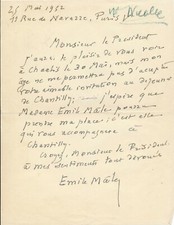 25 Mai 1952
11 Rue de Navarre, Paris
Monsieur le Président
J'aurai le plaisir de vous voir
à Chaalis le 30 Mai, mais mon
âge ne me permettra pas d'accepter
votre aimable invitation au déjeuner
de Chantilly. J'espère que
Madame Emile Mâle pourra
prendre ma place; c'est elle
qui vous accompagnera à
Chantilly.
Croyez, Monsieur le Président,
à mes sentiments tout dévoués
Emile Mâle